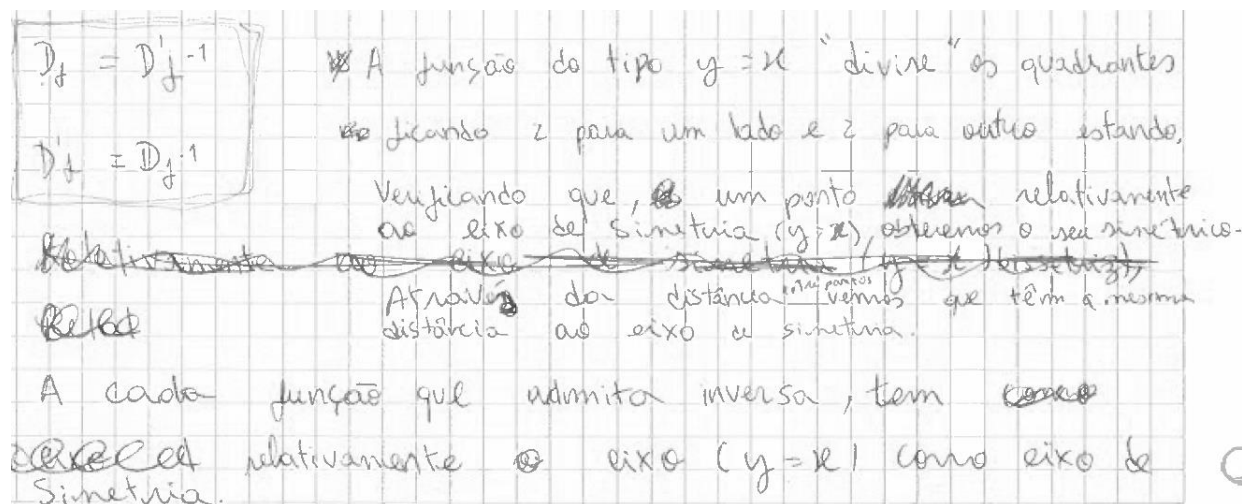 D_f = D'_f^-1
D'_f = D_f^-1
A função do tipo y = x "divide" os quadrantes
ficando 2 para um lado e 2 para outro estando,
Verificando que, um ponto relativamente
ao eixo de simetria (y=x) obteremos o seu simétrico.
Relativamente ao eixo de simetria (y = x) (bissetriz),
Através da distância entre pontos vemos que têm a mesma
distância ao eixo de simetria.
A cada função que admita inversa, tem
relativamente o eixo (y=x) como eixo de
Simetria.